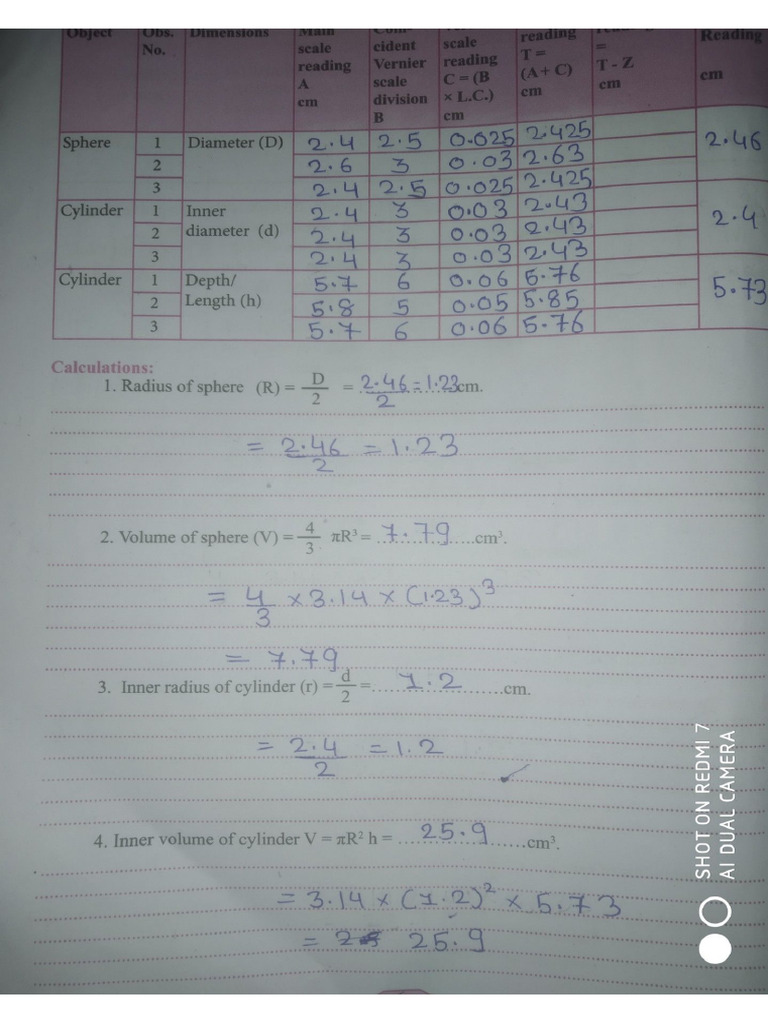 Object Obs. No. Dimensions Main scale reading A cm cident Vernier scale division B scale reading C = (B × L.C.) cm reading T = (A + C) cm = T - Z cm Reading cm
Sphere 1 Diameter (D) 2.4 2.5 0.025 2.425 2.46
2 2.6 3 0.03 2.63
3 2.4 2.5 0.025 2.425
Cylinder 1 Inner diameter (d) 2.4 3 0.03 2.43 2.4
2 2.4 3 0.03 2.43
3 2.4 3 0.03 2.43
Cylinder 1 Depth/ Length (h) 5.7 6 0.06 5.76 5.73
2 5.8 5 0.05 5.85
3 5.7 6 0.06 5.76
Calculations:
1. Radius of sphere (R) = D/2 = 2.46/2 = 1.23 cm.
= 2.46/2 = 1.23
2. Volume of sphere (V) = 4/3 πR³ = 7.79 cm³.
= 4/3 × 3.14 × (1.23)³
= 7.79
3. Inner radius of cylinder (r) = d/2 = 1.2 cm.
= 2.4/2 = 1.2
4. Inner volume of cylinder V = πR² h = 25.9 cm³.
= 3.14 × (1.2)² × 5.73
= 25.9
SHOT ON REDMI 7
AI DUAL CAMERA